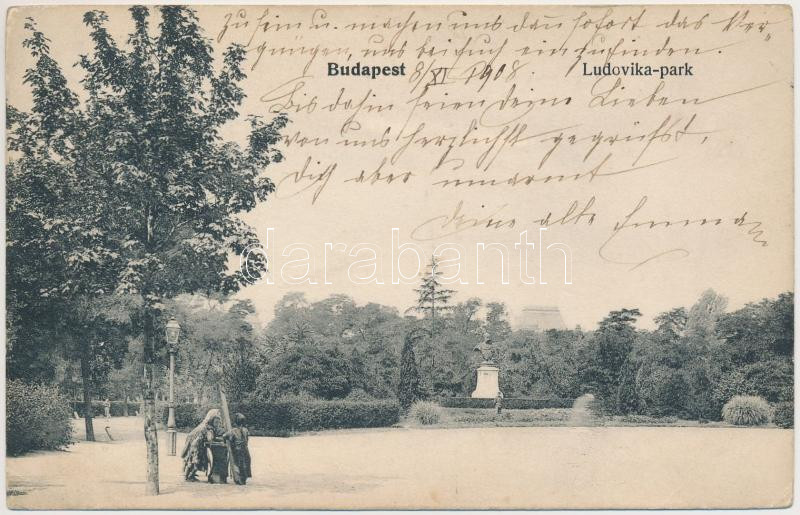 zu sein u. machen uns dann sofort das Ver-
gnügen, uns bei Euch einzufinden.
Budapest 8/XI 1908. Ludovika-park
Bis dahin seien deine Lieben
von uns herzlichst gegrüsst,
dich aber umarmt
deine alte Emma
darabanth